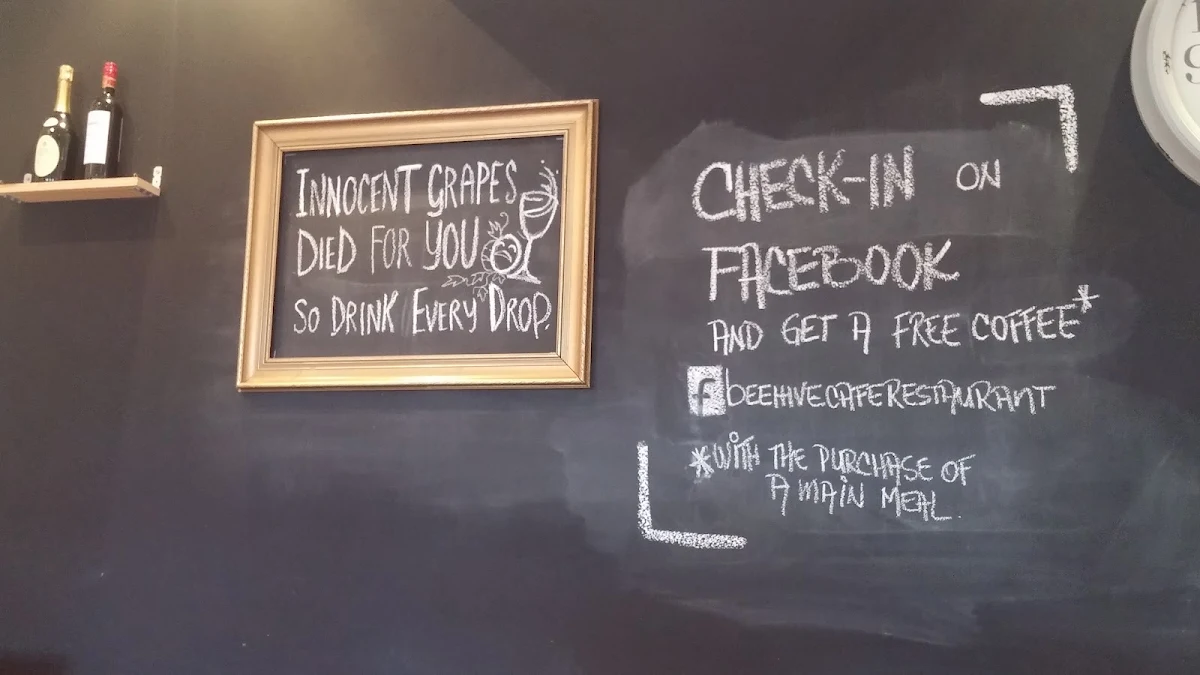 INNOCENT GRAPES
DIED FOR YOU
SO DRINK EVERY DROP.
CHECK-IN ON
FACEBOOK
AND GET A FREE COFFEE*
f BEEHIVECAFERESTAURANT
*WITH THE PURCHASE OF
A MAIN MEAL.